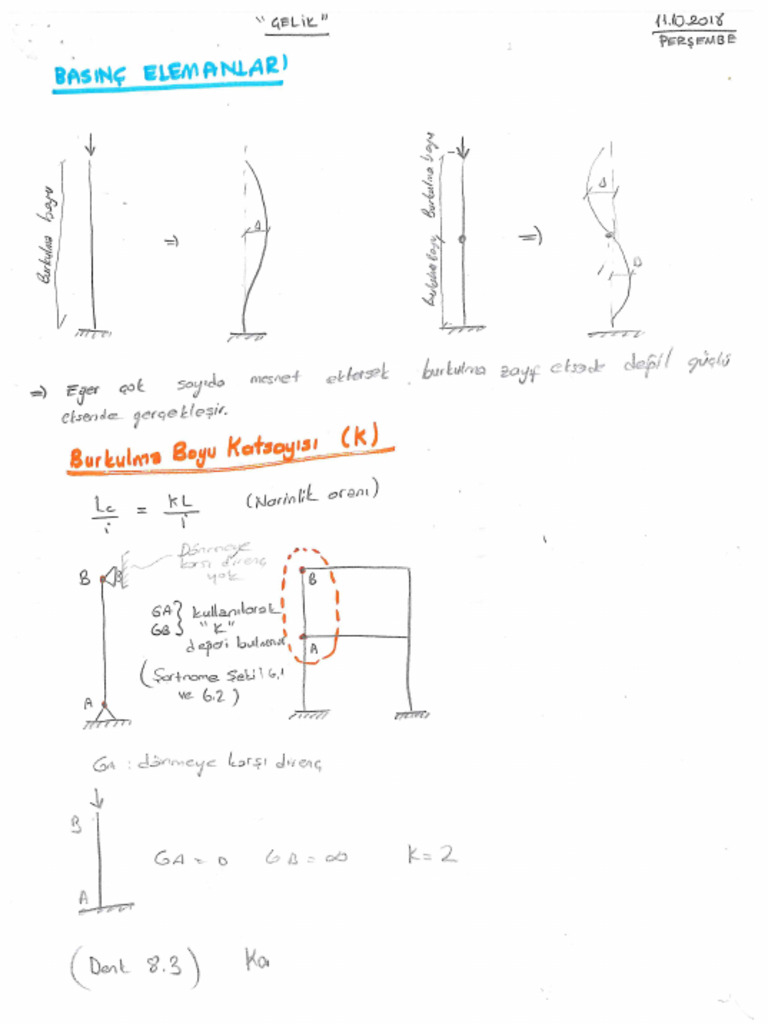 "ÇELİK"
11.10.2018
PERŞEMBE
BASINÇ ELEMANLARI
Burkulma boyu
=)
Δ
Burkulma boyu
Burkulma boyu
=)
Δ
Δ
=) Eğer çok sayıda mesnet eklersek burkulma zayıf eksende değil güçlü
eksende gerçekleşir.
Burkulma Boyu Katsayısı (K)
Lc/i = KL/i (Narinlik oranı)
Dönmeye
karşı direnç
yok
B
A
GA } kullanılarak
GB } "K"
değeri bulunur
(Şartname Şekil 6.1
ve 6.2)
B
A
GA : dönmeye karşı direnç
B
A
GA = 0 GB = ∞ K = 2
(Denk 8.3) Ka